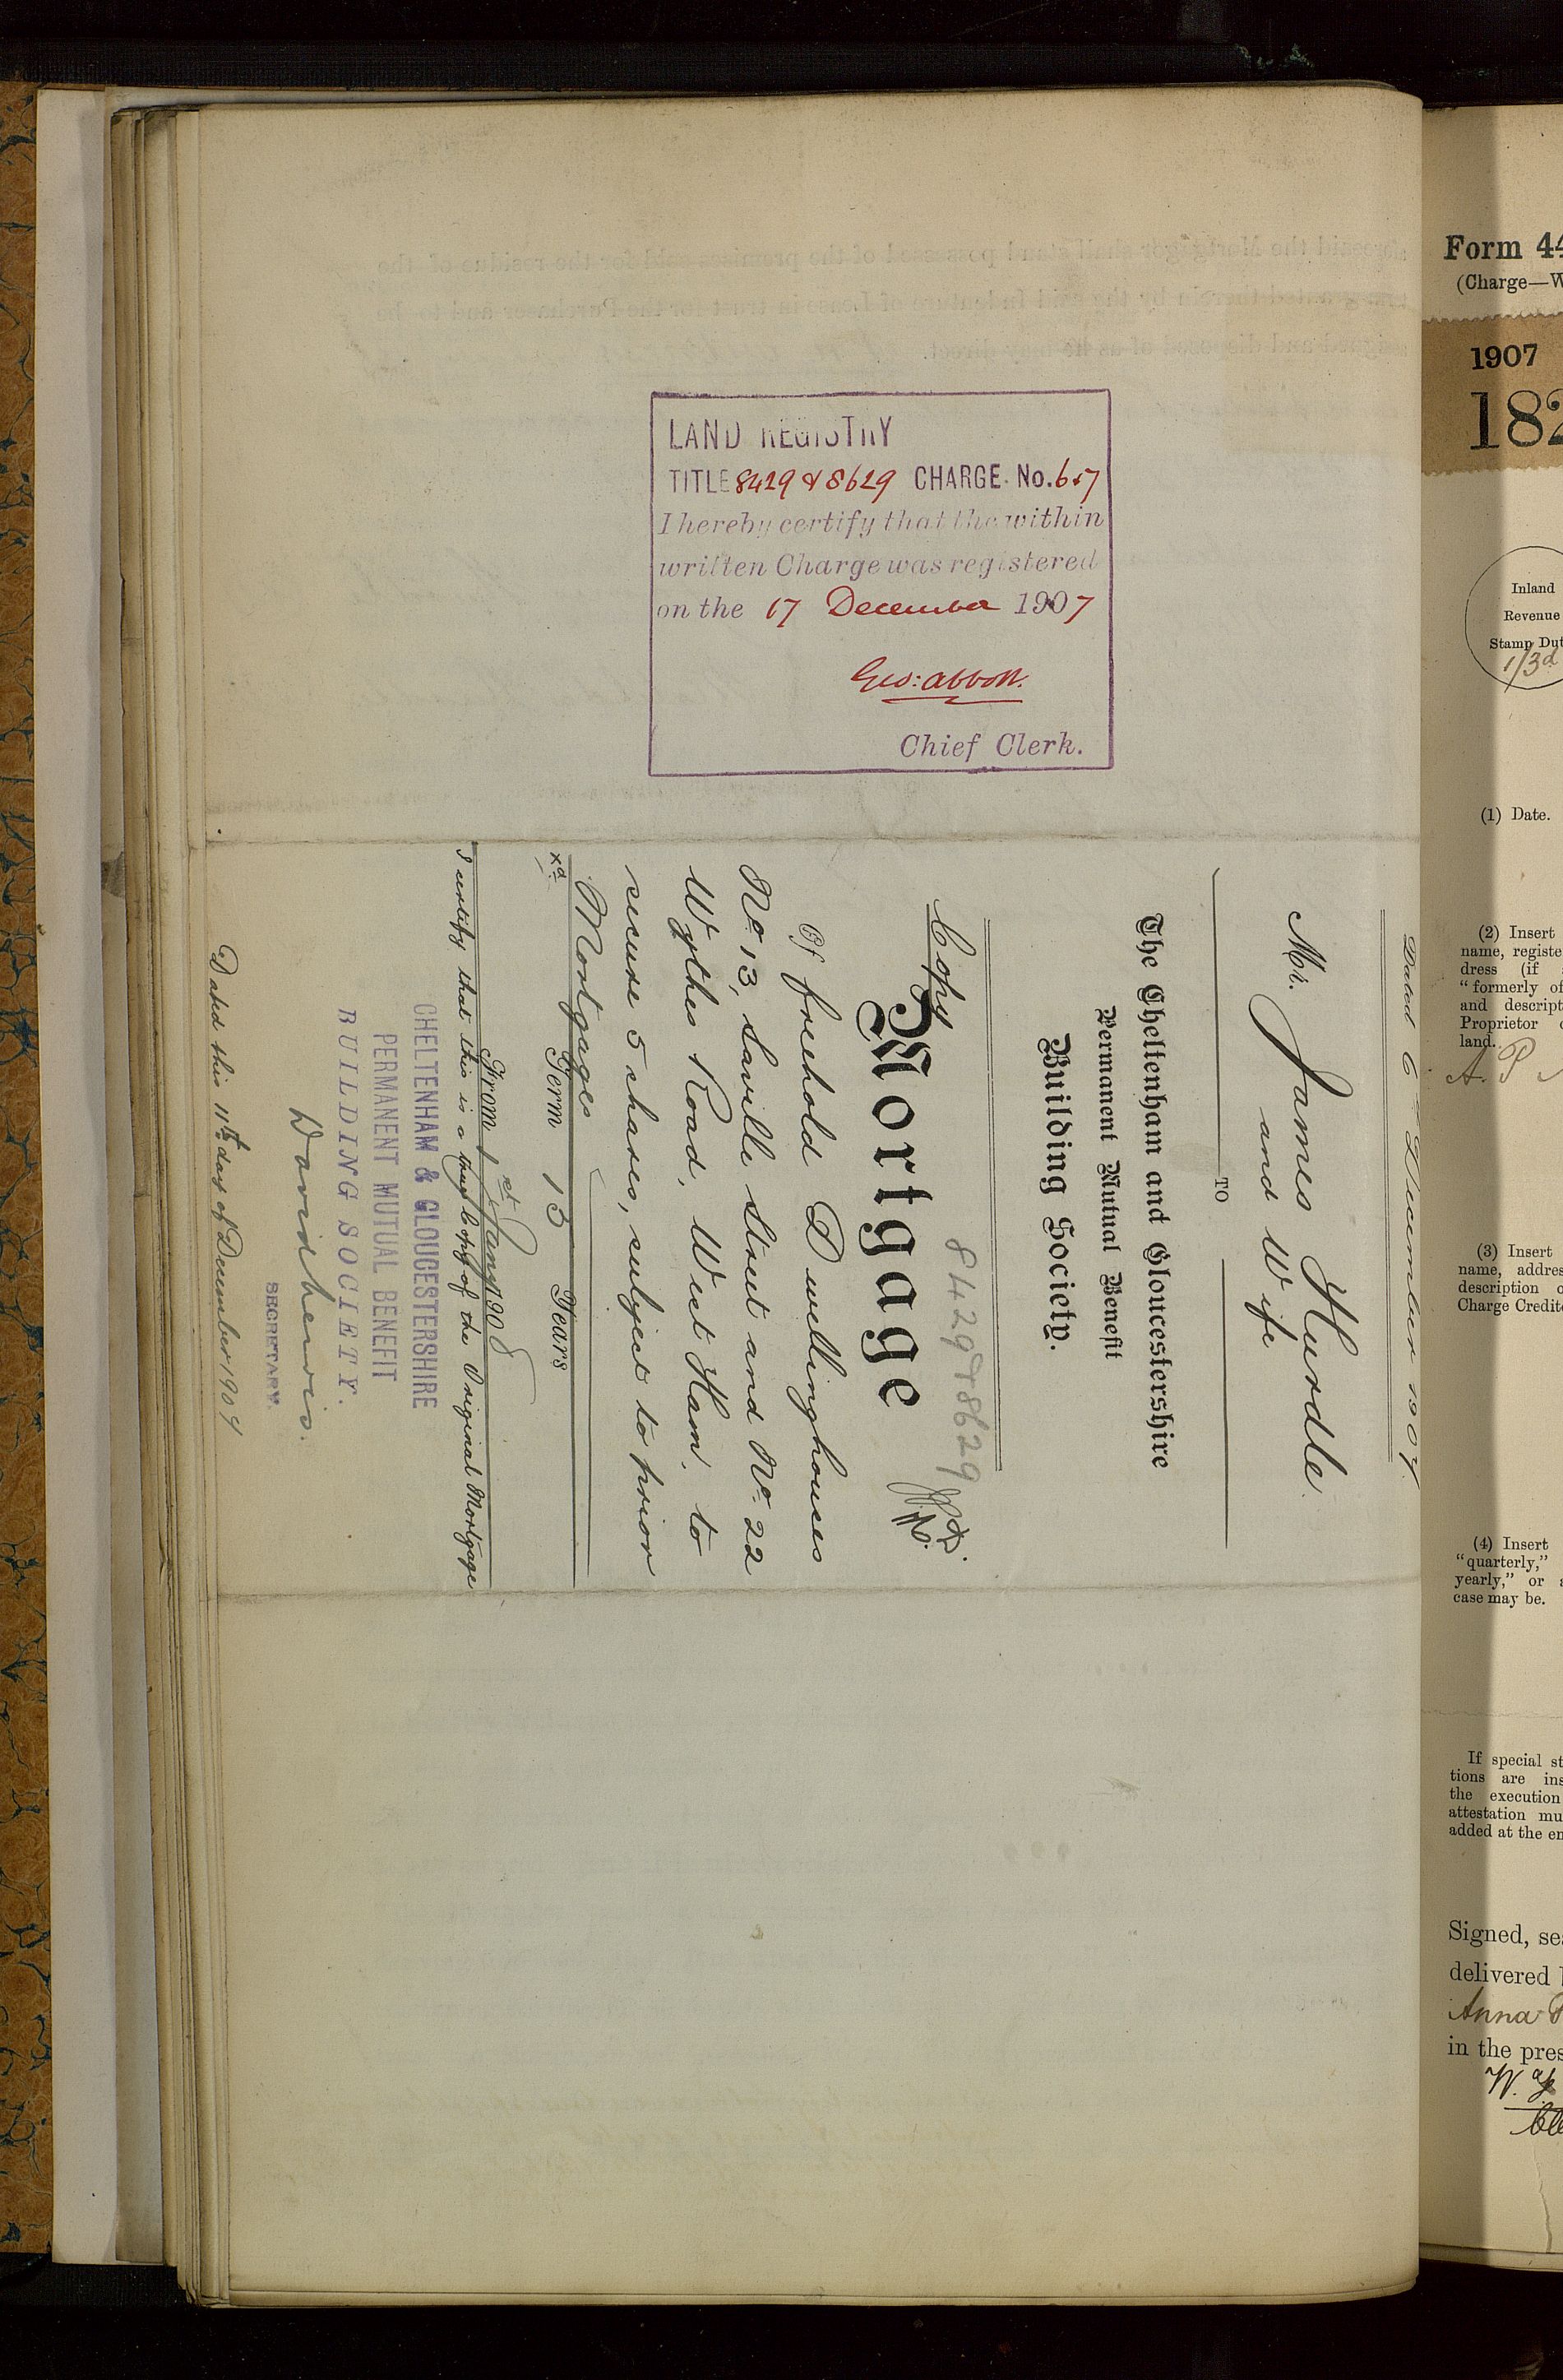 LAND REGISTRY
TITLE 8429 & 8629 CHARGE No. 6 & 7
I hereby certify that the within
written Charge was registered
on the 17 December 1907
Geo: Abbott.
Chief Clerk.
Dated 6th December 1907.
Mr. James Hurdle
and Wife
TO
The Cheltenham and Gloucestershire
Permanent Mutual Benefit
Building Society.
8429 & 8629
Copy
Mortgage
Of freehold Dwellinghouses
No. 13, Saville Street and No. 22
Wythes Road, West Ham, to
secure 5 shares, subject to prior
Mortgages
xd
Term 13 Years
From 1st Jany 1908
I certify that this is a true Copy of the Original Mortgage
CHELTENHAM & GLOUCESTERSHIRE
PERMANENT MUTUAL BENEFIT
BUILDING SOCIETY.
David Lewis.
SECRETARY.
Dated this 11th day of December 1907
Form 44
(Charge—W
1907
182
Inland
Revenue
Stamp Dut
1/3d
(1) Date.
(2) Insert
name, registe
dress (if
"formerly of
and descript
Proprietor
land.
A. P
(3) Insert
name, addres
description o
Charge Credito
(4) Insert
"quarterly,"
yearly," or a
case may be.
If special st
tions are ins
the execution
attestation mu
added at the en
Signed, sea
delivered
Anna P
in the pres
W.
Cle